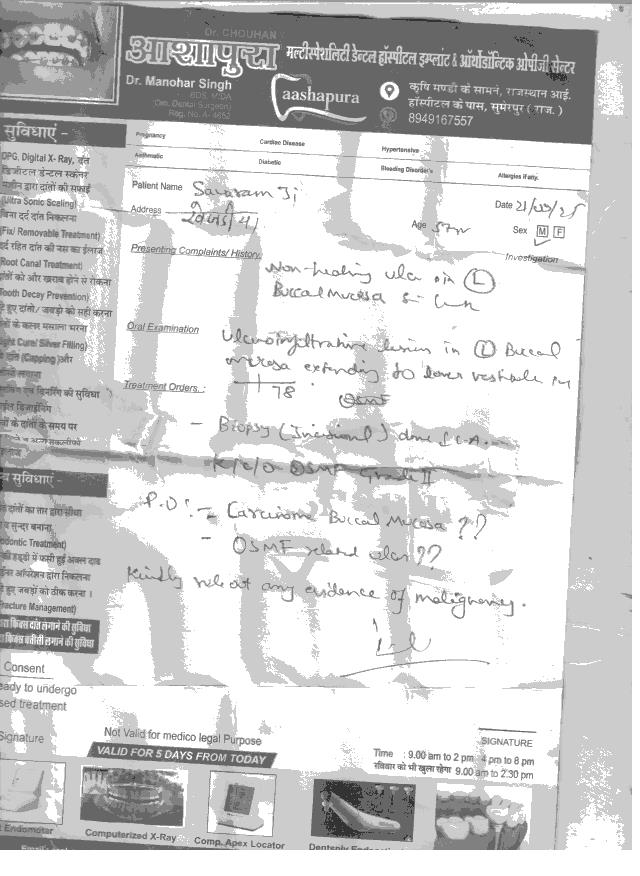 Dr. CHOUHAN
आशापुरा मल्टीस्पेशलिटी डेन्टल हॉस्पीटल इम्प्लांट & ऑर्थोडॉन्टिक ओपीजी सेन्टर
Dr. Manohar Singh
BDS, MIDA
(Oro. Dental Surgeon)
Reg. No. A- 4652
aashapura
कृषि मण्डी के सामने, राजस्थान आई.
हॉस्पीटल के पास, सुमेरपुर ( राज. )
8949167557
सुविधाएं -
OPG, Digital X- Ray, दंत
डिजीटल डेन्टल स्केनर
मशीन द्वारा दांतों की सफाई
(Ultra Sonic Scaling)
बिना दर्द दांत निकलना
(Fix/ Removable Treatment)
दर्द रहित दांत की नस का ईलाज
Root Canal Treatment)
दांतों को और खराब होने से रोकना
Tooth Decay Prevention)
हुए दांतों/ जबड़ों को सही करना
के कलर मसाला भरना
ght Cure/ Silver Filling)
दांत (Capping) और
लगाना
की सुविधा
डिजाईनिंग
के दांतों के समय पर
सुविधाएं -
दांतों का तार द्वारा सीधा
व सुन्दर बनाना
odontic Treatment)
की हड्डी में फसी हुई अक्ल दाढ
ऑपरेशन द्वारा निकलना
हुए जबड़ों को ठीक करना ।
racture Management)
फिक्स दांत लगाने की सुविधा
फिक्स बत्तीसी लगाने की सुविधा
Pregnancy Cardiac Disease Hypertensive
Asthmatic Diabetic Bleeding Disorder's Allergies if atty.
Patient Name Savaram Ji Date 21/09/25
Address Age 57 Sex M F
Presenting Complaints/ History Investigation
Non-healing ulcer in L
Buccal Mucosa
Oral Examination
Ulceroinfiltrative lesion in L Buccal
mucosa extending to lower vestibule
Treatment Orders. : 78
OSMF
- Biopsy (Incisional) done L.A.
K/c/o OSMF Grade II
P.D :- Carcinoma Buccal Mucosa ??
- OSMF related ulcer ??
Kindly rule out any evidence of malignancy.
Consent
eady to undergo
sed treatment
Signature
Not Valid for medico legal Purpose
VALID FOR 5 DAYS FROM TODAY
SIGNATURE
Time : 9.00 am to 2 pm 4 pm to 8 pm
रविवार को भी खुला रहेगा 9.00 am to 2.30 pm
Endomotor
Computerized X-Ray
Comp. Apex Locator
Dentsply